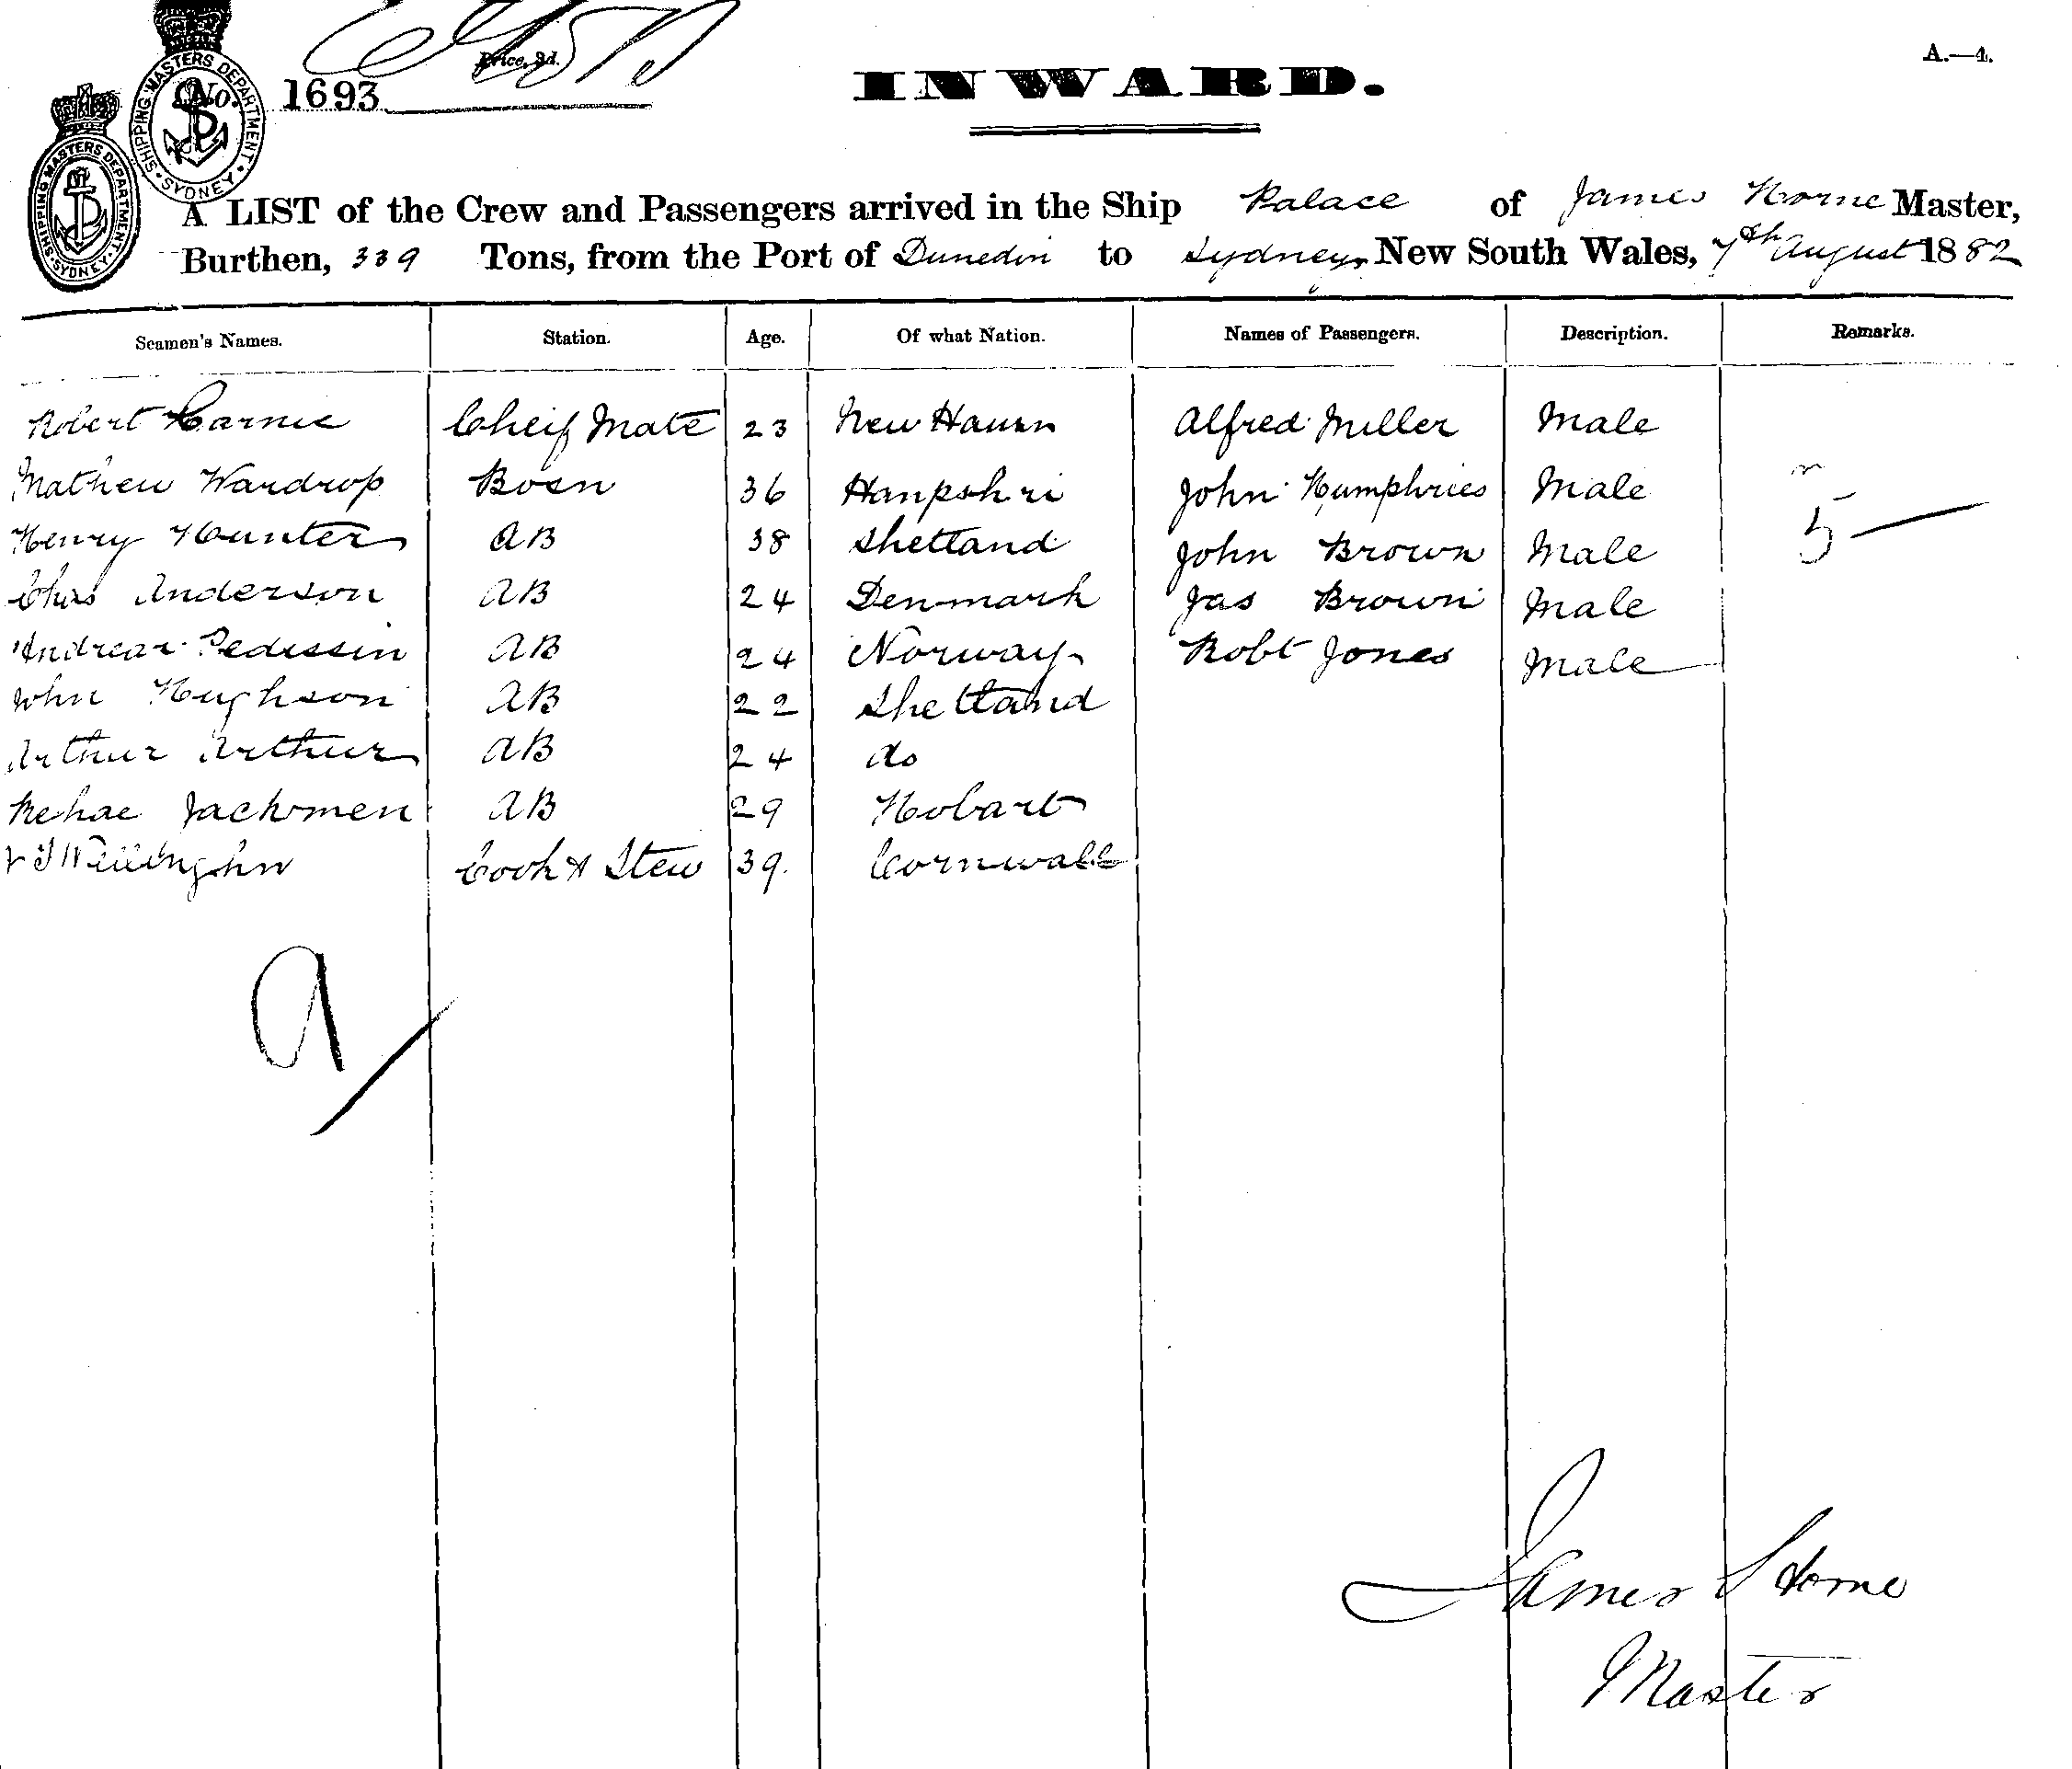 SHIPPING MASTERS DEPARTMENT · SYDNEY ·
SHIPPING MASTERS DEPARTMENT · SYDNEY ·
Price, 3d.
No. 1693
A.—4.
INWARD.
A LIST of the Crew and Passengers arrived in the Ship Palace of James Horne Master,
Burthen, 339 Tons, from the Port of Dunedin to Sydney, New South Wales, 7th August 1882
Seamen's Names. Station. Age. Of what Nation. Names of Passengers. Description. Remarks.
Robert Carnie Cheif Mate 23 New Haven Alfred Miller Male
Mathew Wardrop Bosn 36 Hanpshri John Humphries Male
Henry Hunter AB 38 Shetland John Brown Male 5
Chas Anderson AB 24 Denmark Jas Brown Male
Andreas Pedissin AB 24 Norway Robt Jones Male
John Hughson AB 22 Shetland
Arthur Arthur AB 24 do
Jackmen AB 29 Hobart
Cook & Stew 39. Cornwall
9
James Horne
Master